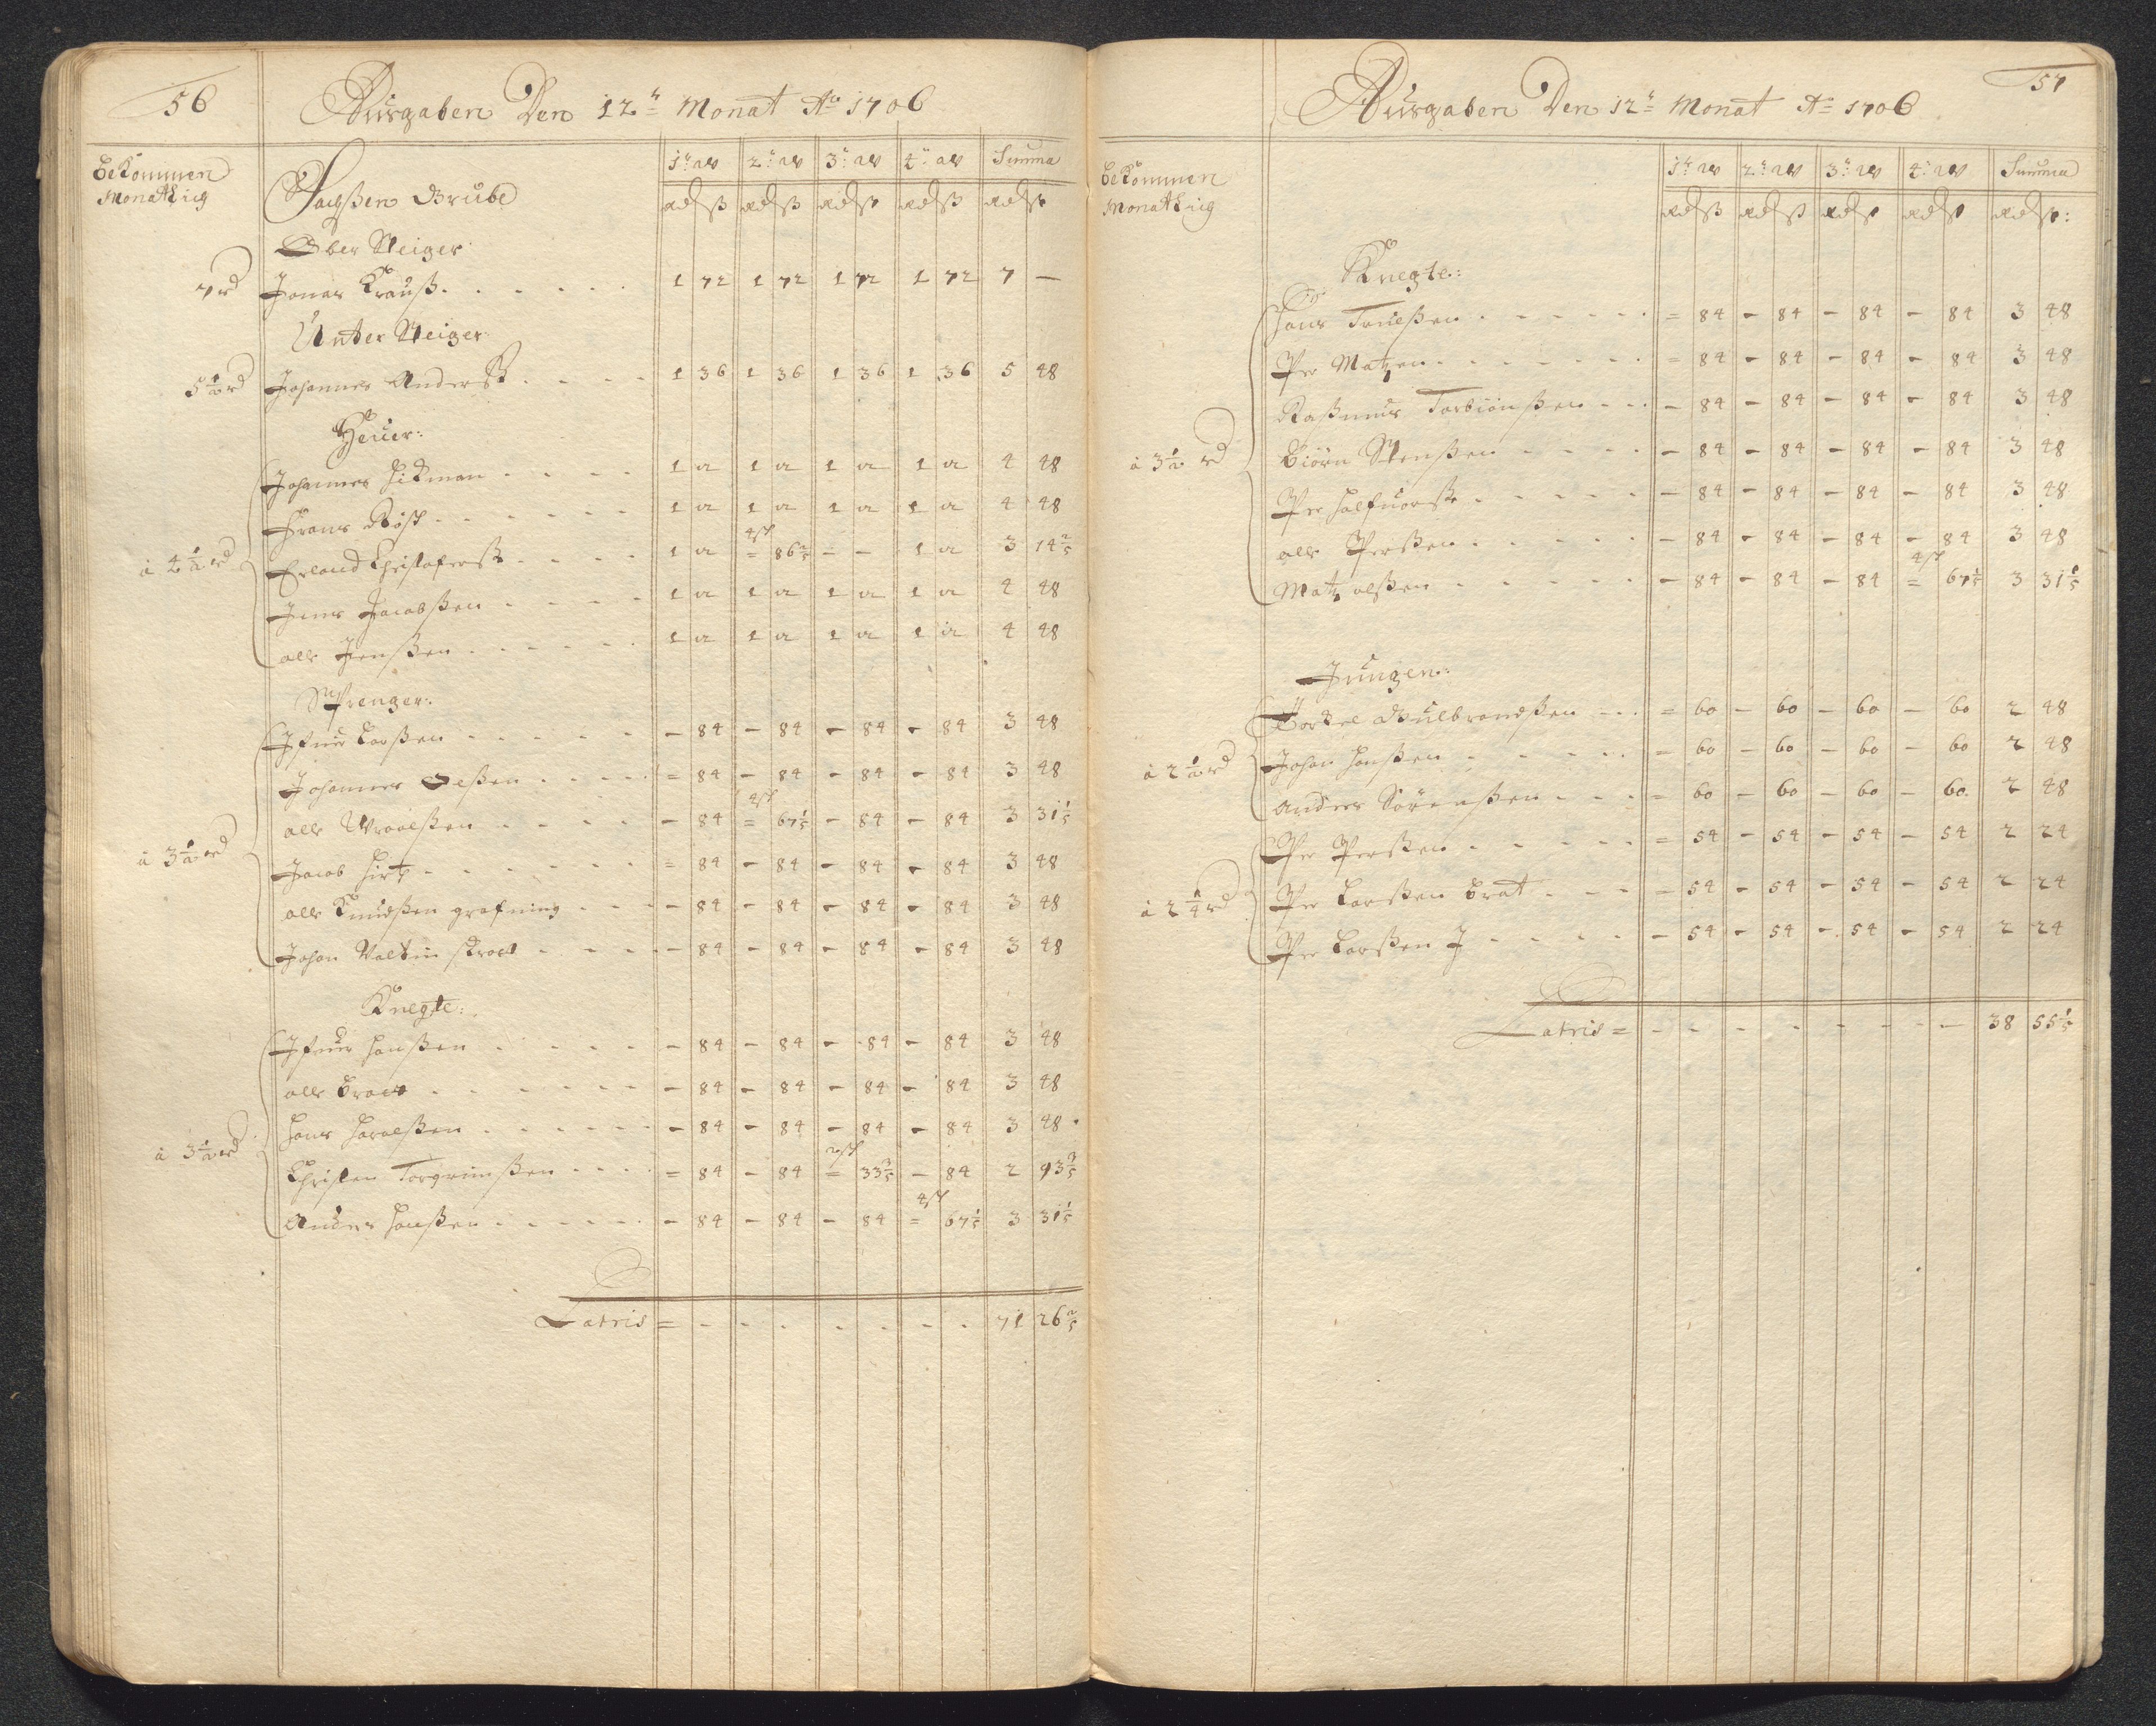 56
Ausgaben Den 12ᵗ Monat Aº 1706
Bekommen Monatlig
Sachßen Grube
1ᵗ aw 2ᵗ aw 3ᵗ aw 4ᵗ aw Summa
rdß rdß rdß rdß rdß
Ober Steiger
7 rd Jonas Krauß 1 72 1 72 1 72 1 72 7 —
Unter Steiger
5 1/2 rd Johannes Anderß 1 36 1 36 1 36 1 36 5 48
Heuer:
à 4 1/2 rd
Johannes Hickman 1 12 1 12 1 12 1 12 4 48
Frans Röst 1 12 1 12 1 12 1 12 4 48
Erland Christoferß 1 12 4sch = 86 2/5 - - 1 12 3 14 2/5
Jens Jacobßen 1 12 1 12 1 12 1 12 4 48
olle Jenßen 1 12 1 12 1 12 1 12 4 48
Sprenger:
à 3 1/2 rd
Ifuer Larßen - 84 - 84 - 84 - 84 3 48
Johannes Oelßen = 84 - 84 - 84 - 84 3 48
olle Wroolßen - 84 4sch = 67 1/5 - 84 - 84 3 31 1/5
Jacob Hirtz = 84 - 84 - 84 - 84 3 48
olle Knudßen grafning - 84 - 84 - 84 - 84 3 48
Johan Valtin - 84 - 84 - 84 - 84 3 48
Knegte:
à 3 1/2 rd
Ifuer Hanßen - 84 - 84 - 84 - 84 3 48
olle Braw - 84 - 84 - 84 - 84 3 48
Hans Haralßen - 84 - 84 - 84 - 84 3 48
Christen Torgrimßen = 84 - 84 = 33 3/5 - 84 2 93 3/5
Anders Hanßen - 84 - 84 - 84 4sch = 67 1/5 3 31 1/5
Latris = 71 26 2/5
57
Ausgaben Den 12ᵗ Monat Aº 1706
Bekommen Monatlig
1ᵗ aw 2ᵗ aw 3ᵗ aw 4ᵗ aw Summa
rdß rdß rdß rdß rdß:
Knegte:
à 3 1/2 rd
Hans Truelßen = 84 - 84 - 84 - 84 3 48
Per Matzen = 84 - 84 - 84 - 84 3 48
Raßmus Torbiönßen - 84 - 84 - 84 - 84 3 48
Biörn Stenßen - 84 - 84 - 84 - 84 3 48
Per Halfuorß - 84 - 84 - 84 - 84 3 48
olle Perßen - 84 - 84 - 84 - 84 3 48
Matz olßen - 84 - 84 - 84 4sch = 67 1/5 3 31 1/5
Jungen:
à 2 1/2 rd
Torkel Gulbrandßen = 60 - 60 - 60 - 60 2 48
Johan Hanßen = 60 - 60 - 60 - 60 2 48
Anders Sörenßen = 60 - 60 - 60 - 60 2 48
à 2 1/4 rd
Per Perßen = 54 - 54 - 54 - 54 2 24
Per Larßen Brat - 54 - 54 - 54 - 54 2 24
Per Larßen J - 54 - 54 - 54 - 54 2 24
Latris = 38 55 1/5